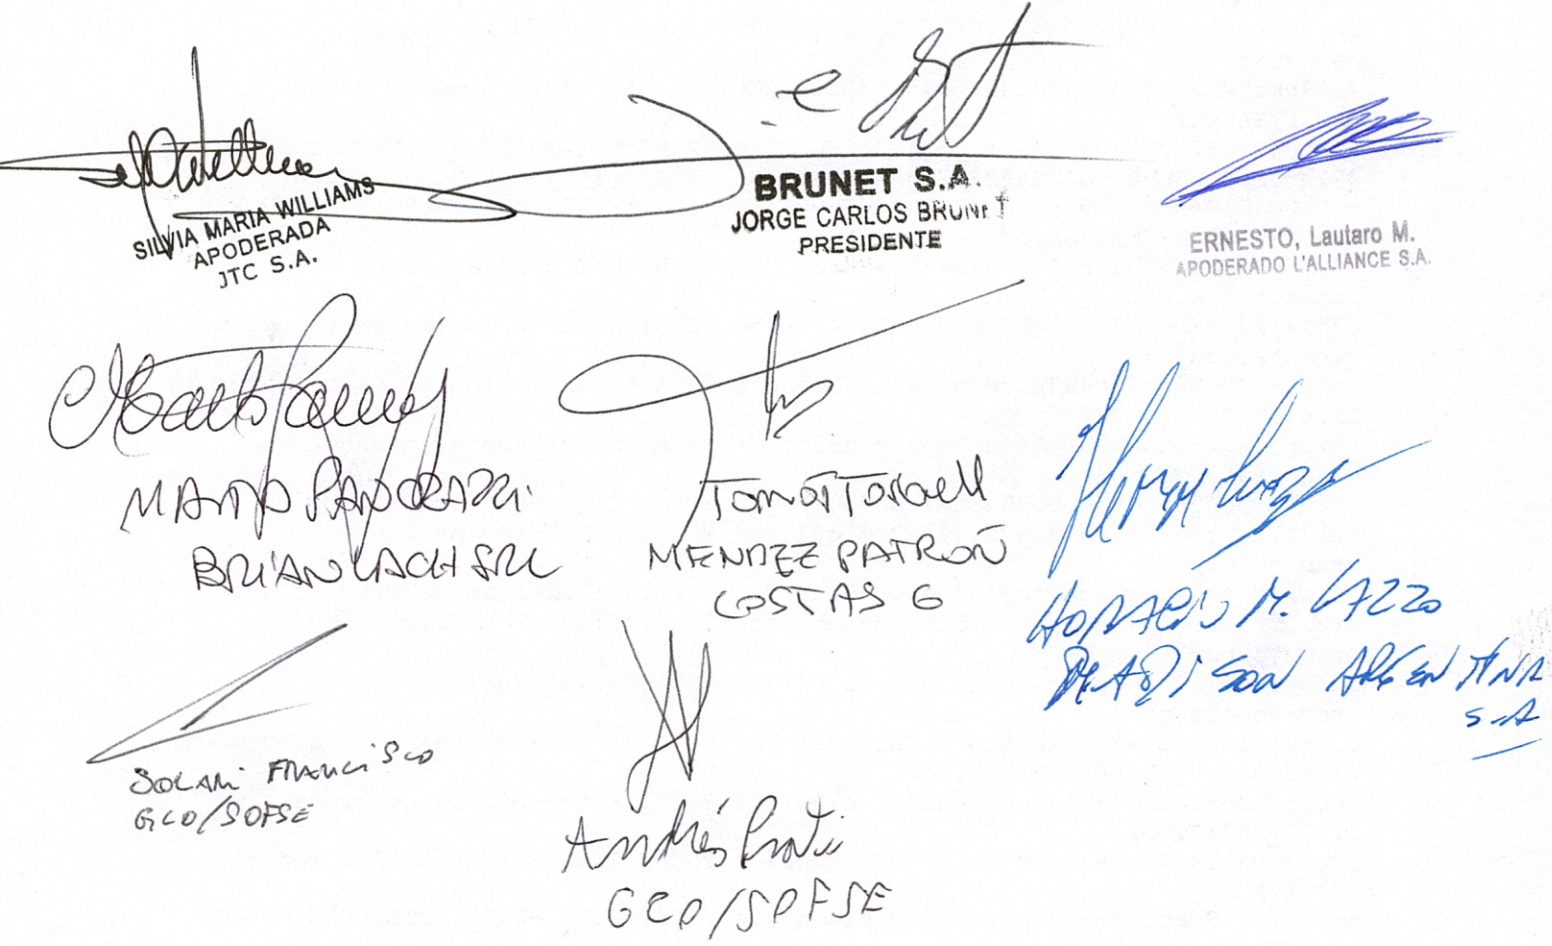 SILVIA MARIA WILLIAMS
APODERADA
JTC S.A.
BRUNET S.A.
JORGE CARLOS BRUNET
PRESIDENTE
ERNESTO, Lautaro M.
APODERADO L'ALLIANCE S.A.
BRIAN LACH SRL
MENDEZ PATRON
COSTAS G
HORACIO M. LAZZO
ARGENTINA
S.A
SOLARI FRANCISCO
GCO/SOFSE
Andrés
GCO/SOFSE